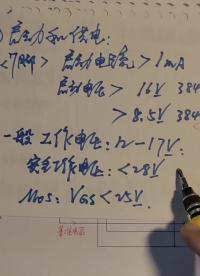 )启动和供电:
<7脚> 启动电流>1mA
启动电压> 16V 384
> 8.5V 384
一般工作电压:12-17V:
安全工作电压:<28V
Mos: VGS<25V.